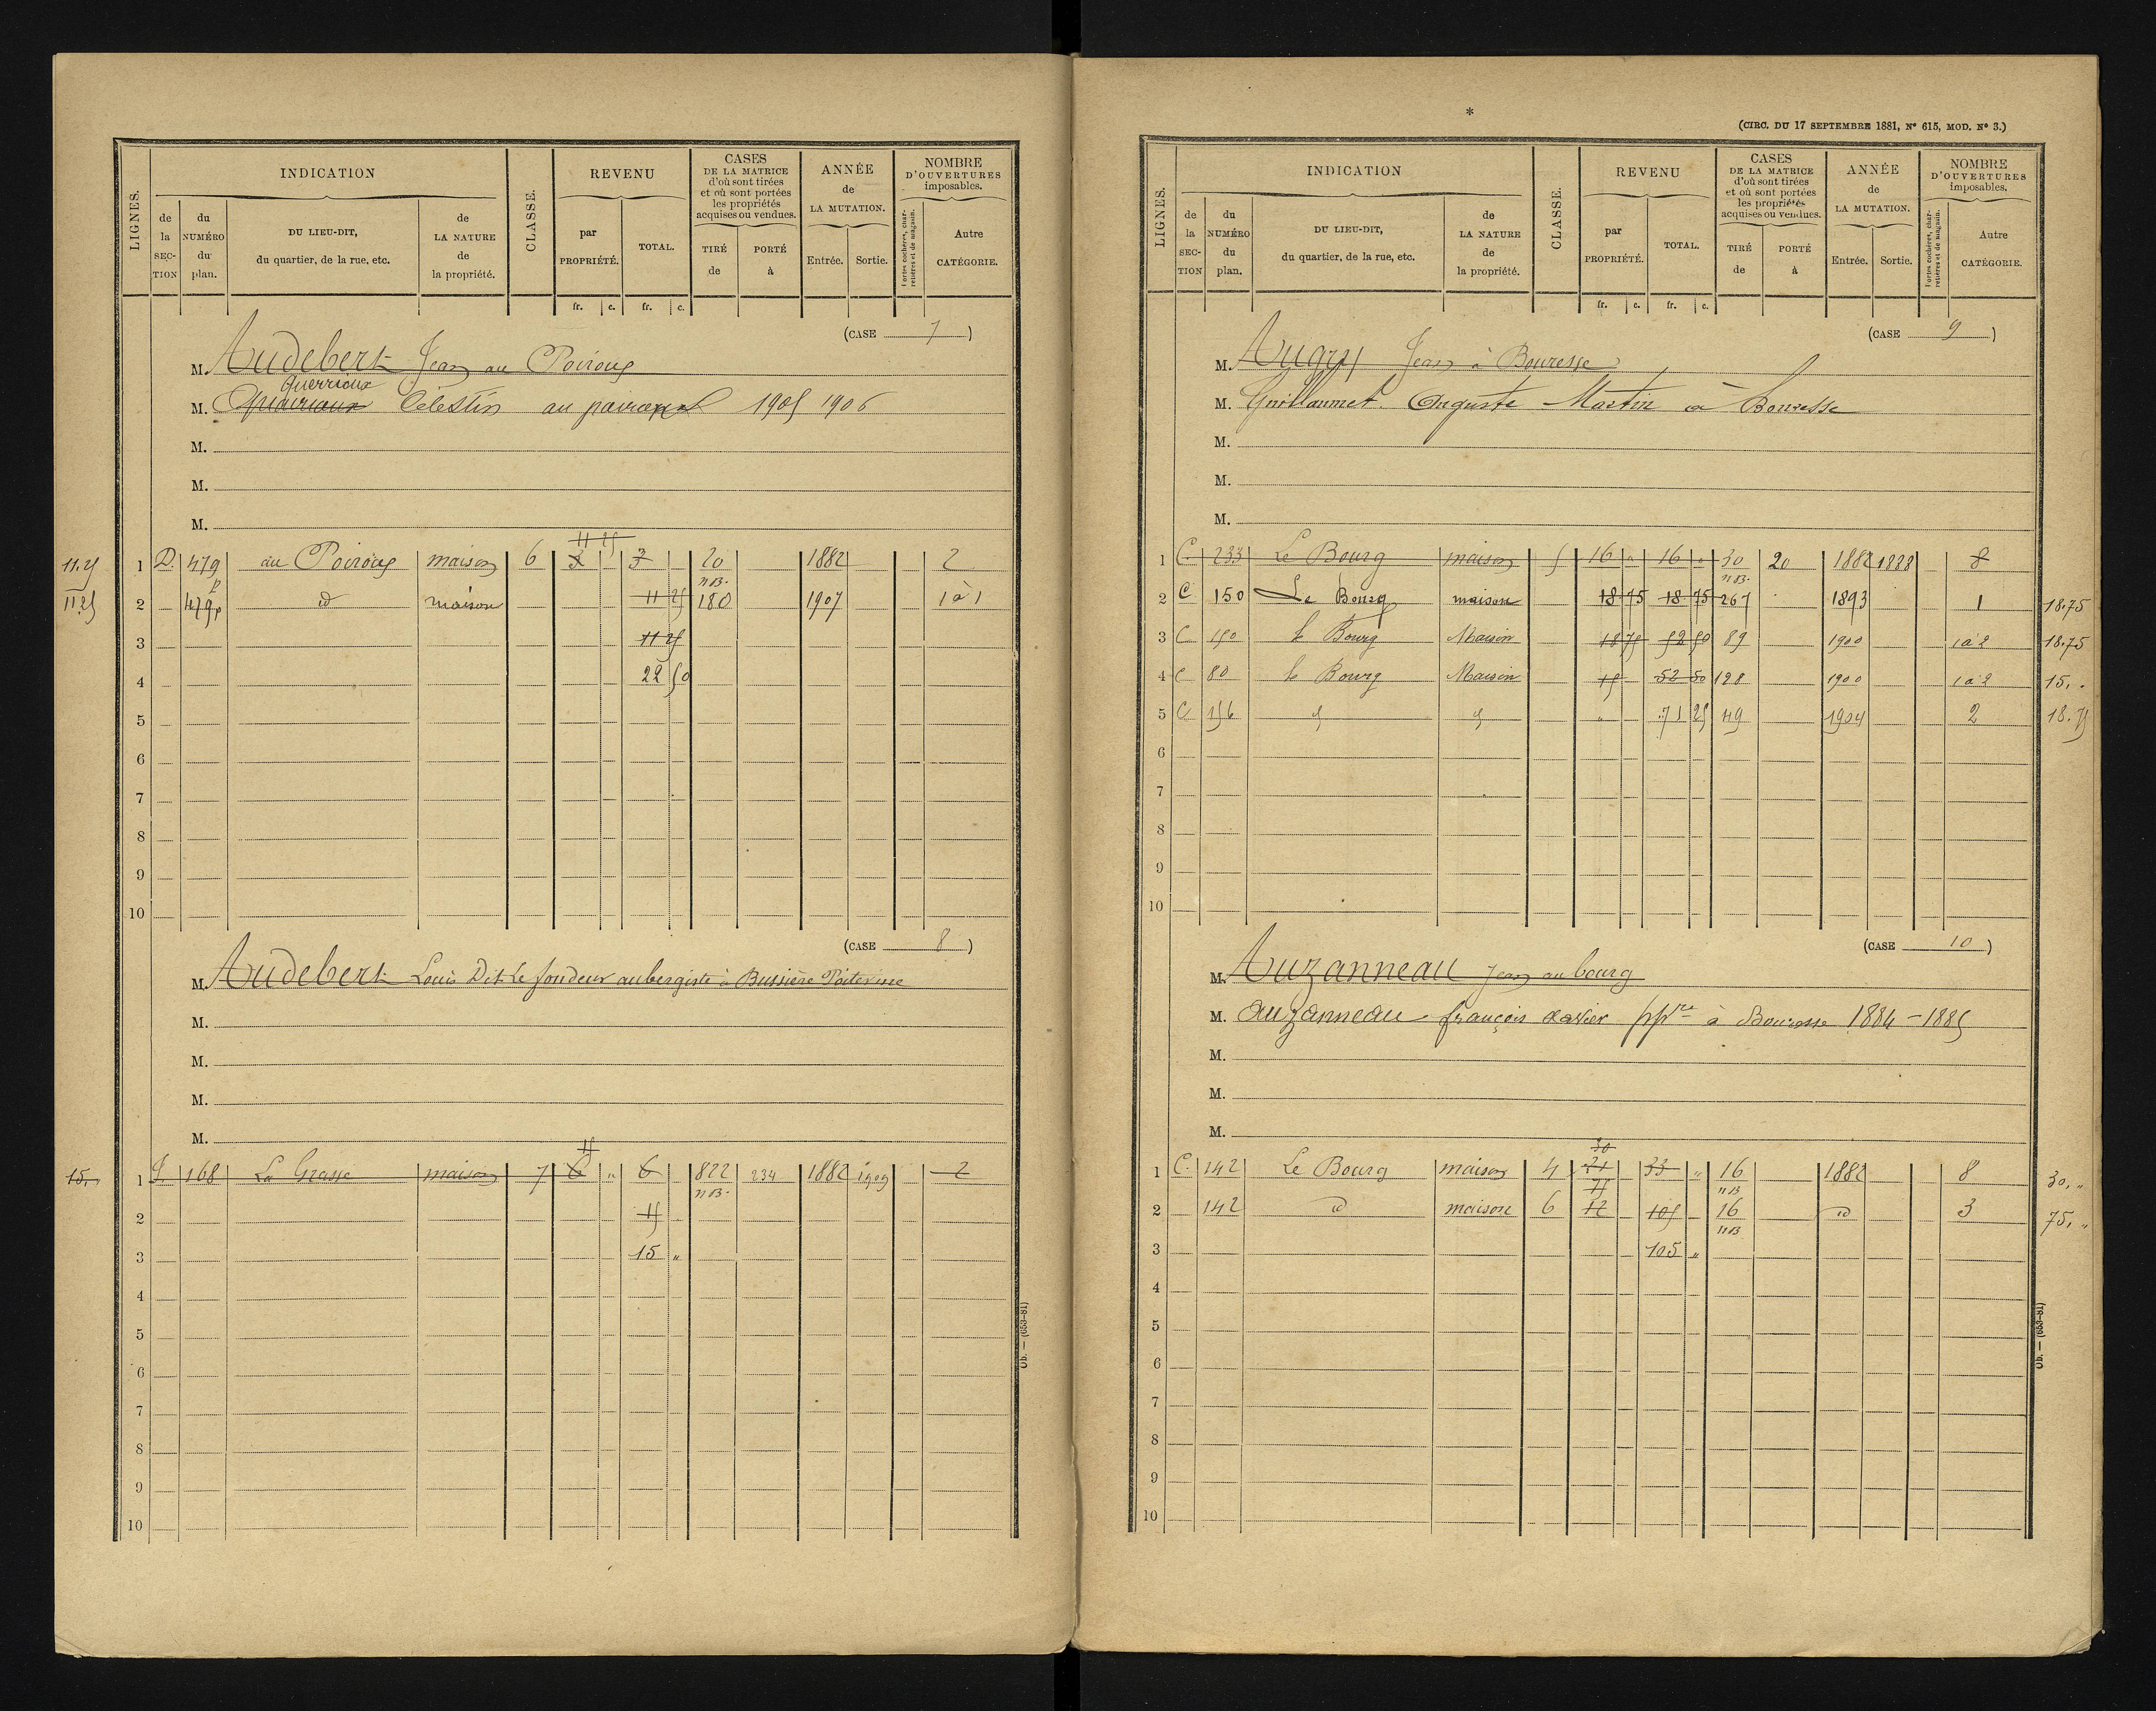 LIGNES.
INDICATION
de la SEC-TION
du NUMÉRO du plan.
DU LIEU-DIT, du quartier, de la rue, etc.
de LA NATURE de la propriété.
CLASSE.
REVENU
par PROPRIÉTÉ.
TOTAL.
CASES DE LA MATRICE d'où sont tirées et où sont portées les propriétés acquises ou vendues.
TIRÉ de
PORTÉ à
ANNÉE de LA MUTATION.
Entrée.
Sortie.
NOMBRE D'OUVERTURES imposables.
Portes cochères, charretières et de magasin.
Autre CATÉGORIE.
fr. c. fr. c.
(CASE 7)
M. Audebert Jean au Poiroux
Guerrioux
M. Célestin au 1905 1906
M.
M.
M.
11 25
11.25 1 D. 479 au Poiroux maison 6 3 " 3 20 1882 2
p nB.
11 25 2 479p id maison 11 25 180 1907 1 à 1
3 11 25
4 22 50
5
6
7
8
9
10
(CASE 8)
M. Audebert Louis Dit Le fondeur aubergiste à Bussière Poitevine
M.
M.
M.
M.
15
15. " 1 168 La Grasse maison 7 6 " 6 822 234 1882 1909 2
nB.
2 15
3 15 "
4
5
6
7
8
9
10
Ob. — (653-81)
*
(CIRC. DU 17 SEPTEMBRE 1881, N° 615, MOD. N° 3.)
LIGNES.
INDICATION
de la SEC-TION
du NUMÉRO du plan.
DU LIEU-DIT, du quartier, de la rue, etc.
de LA NATURE de la propriété.
CLASSE.
REVENU
par PROPRIÉTÉ.
TOTAL.
CASES DE LA MATRICE d'où sont tirées et où sont portées les propriétés acquises ou vendues.
TIRÉ de
PORTÉ à
ANNÉE de LA MUTATION.
Entrée.
Sortie.
NOMBRE D'OUVERTURES imposables.
Portes cochères, charretières et de magasin.
Autre CATÉGORIE.
fr. c. fr. c.
(CASE 9)
M. Augry Jean à Bouresse
M. Guillaumet Auguste Martin à Bouresse
M.
M.
M.
1 C. 233 Le Bourg maison 5 16 " 16 " 30 20 1882 1888 8
nB.
2 C 150 Le Bourg maison 18 75 18 75 267 1893 1 18.75
3 C 150 le Bourg Maison 18 75 52 50 89 1900 1 à 2 18.75
4 C 80 le Bourg Maison 15 52 50 128 1900 1 à 2 15. "
5 C 156 " 71 25 49 1904 2 18.75
6
7
8
9
10
(CASE 10)
M. Auzanneau Jean au bourg
M. auzanneau françois xavier pp.re à Bouresse 1884 - 1885
M.
M.
M.
30
1 C. 142 Le Bourg maison 4 21 33 " 16 1882 8 30. "
75 nB
2 142 id maison 6 12 105 16 id 3 75. "
nB
3 105 "
4
5
6
7
8
9
10
Ob. — (653-81)